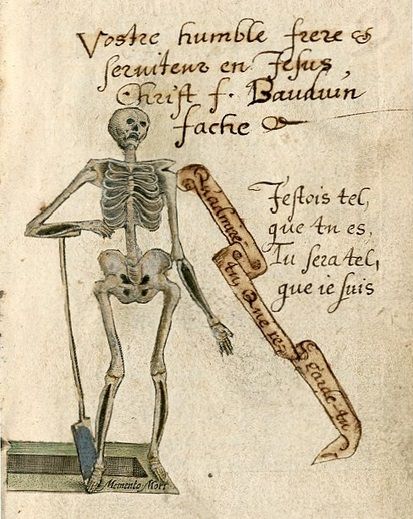 Vostre humble frere &
seruiteur en Jesus,
Christ f. Bauduin
fache
Jestois tel,
que tu es,
Tu sera tel,
que ie suis
Quadmire
tu, Que re=
garde tu
Memento Mori